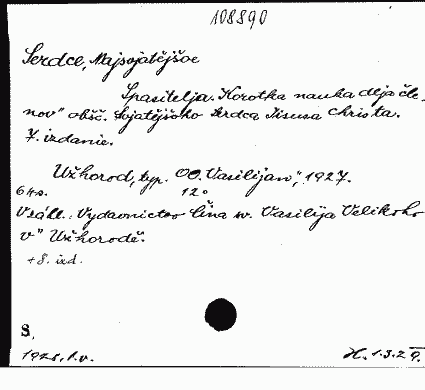 108890
Serdce, Najsvjatějšoe
Spasitelja. Korotka nauka dlja čle-
nov" obšč. Svjatějšoho Serdca Iisusa Christa.
7. izdanie.
Užhorod, typ. OO. Vasilijan", 1927.
64 s. 12°
Veáll.: Vydavnictvo Čina sv. Vasilija Velikoho
v" Užhorodě.
+8. izd.
S,
1928. I. v. H. 1.3.29.